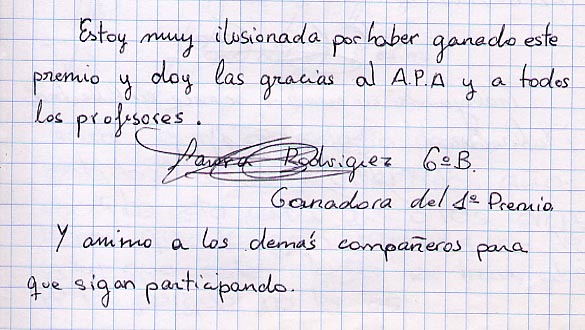 Estoy muy ilusionada por haber ganado este
premio y doy las gracias al A.P.A y a todos
los profesores.
Rodriguez 6º B.
Ganadora del 1º Premio
Y animo a los demás compañeros para
que sigan participando.